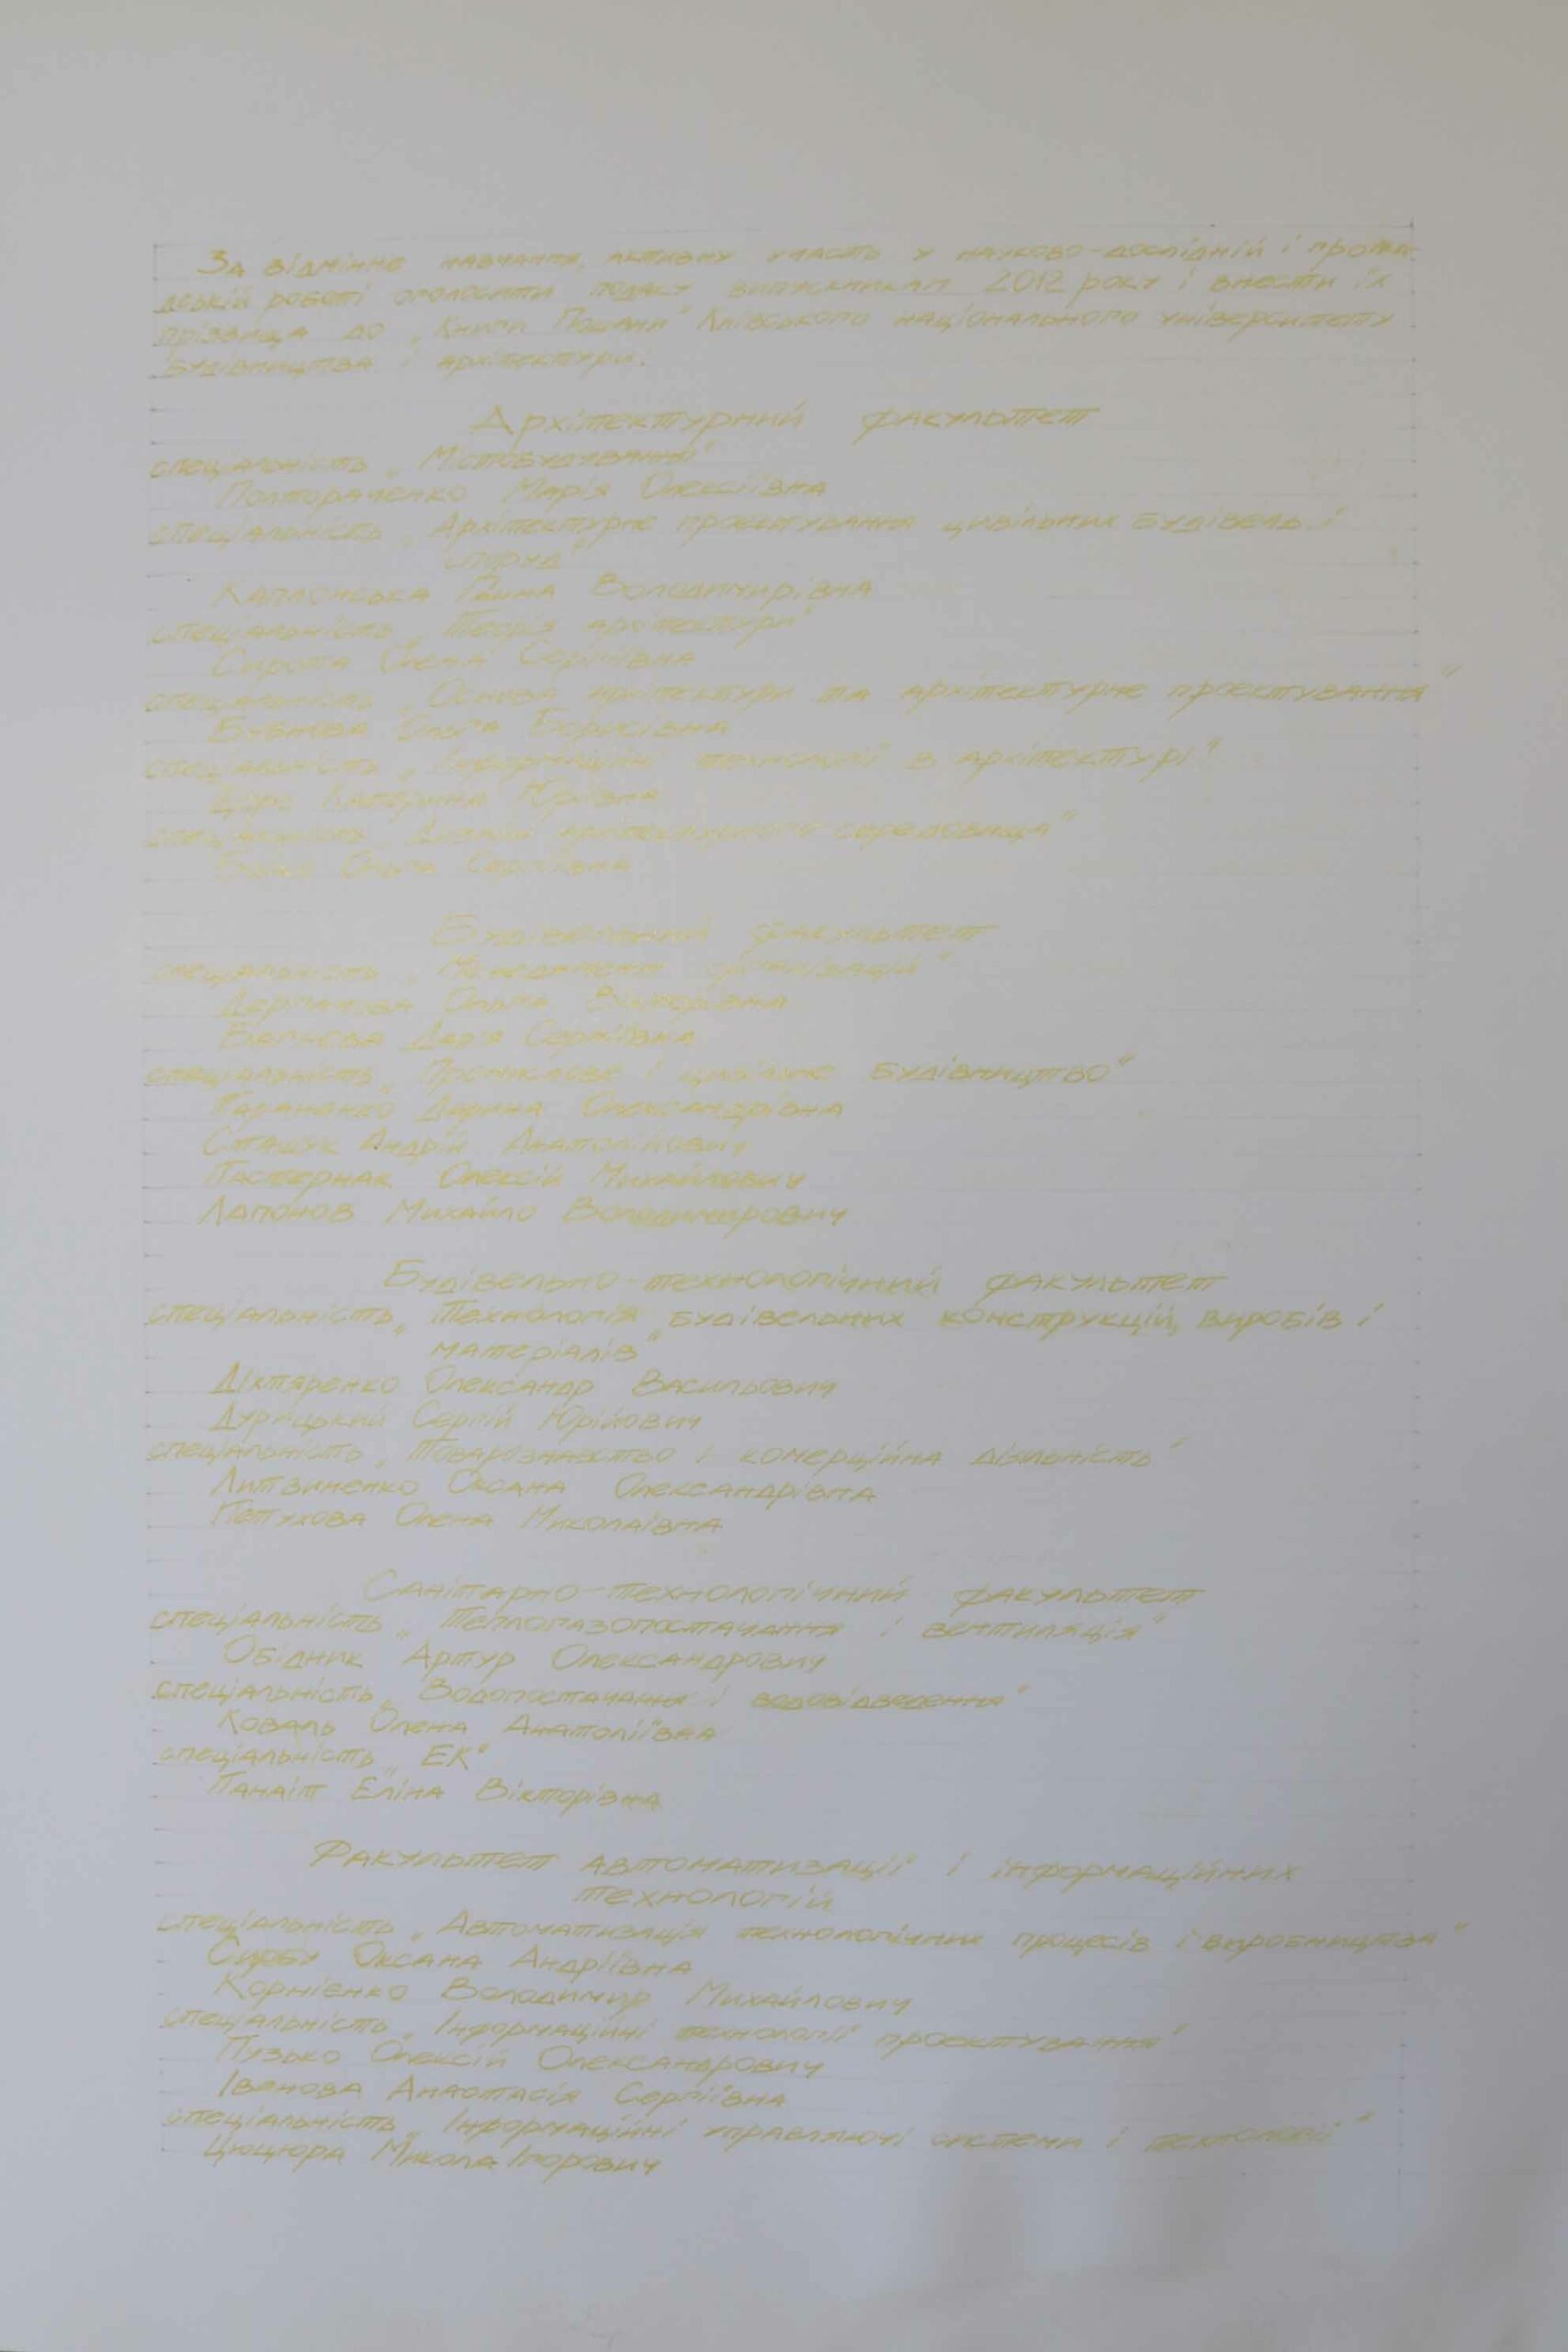 За відмінне навчання, активну участь у науково-дослідній і грома-
дській роботі оголосити подяку випускникам 2012 року і внести їх
прізвища до „Книги Пошани" Київського національного університету
будівництва і архітектури.
Архітектурний факультет
спеціальність „Містобудування"
Полторашенко Марія Олексіївна
спеціальність „Архітектурне проектування цивільних будівель і
споруд"
Володимирівна
спеціальність „Теорія архітектури"
Сирота Олена Сергіївна
спеціальність „Основа архітектури та архітектурне проектування"
Ольга Борисівна
спеціальність „Інформаційні технології в архітектурі"
Катерина Юріївна
спеціальність „Дизайн архітектурного середовища"
Ольга Сергіївна
Будівельний факультет
спеціальність „Менеджмент організацій"
Ольга Вікторівна
Дарія Сергіївна
спеціальність „Промислове і цивільне будівництво"
Дарина Олександрівна
Сташук Андрій Анатолійович
Пастернак Олексій Михайлович
Лапонов Михайло Володимирович
Будівельно-технологічний факультет
спеціальність „Технологія будівельних конструкцій, виробів і
матеріалів"
Діхтяренко Олександр Васильович
Дурицький Сергій Юрійович
спеціальність „Товарознавство і комерційна діяльність"
Литвиненко Оксана Олександрівна
Петухова Олена Миколаївна
Санітарно-технологічний факультет
спеціальність „Теплогазопостачання і вентиляція"
Обідник Артур Олександрович
спеціальність „Водопостачання і водовідведення"
Коваль Олена Анатоліївна
спеціальність „ЕК"
Панаіт Еліна Вікторівна
Факультет автоматизації і інформаційних
технологій
спеціальність „Автоматизація технологічних процесів і виробництва"
Сирбу Оксана Андріївна
Корнієнко Володимир Михайлович
спеціальність „Інформаційні технології проектування"
Пузько Олексій Олександрович
Іванова Анастасія Сергіївна
спеціальність „Інформаційні управляючі системи і технології"
Цюцюра Микола Ігорович